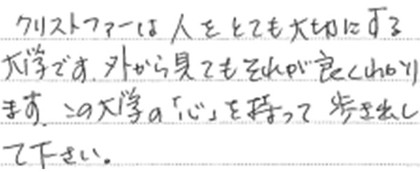 クリストファーは人をとても大切にする
大学です。外から見てもそれが良くわかり
ます。この大学の「心」を持って歩き出し
て下さい。